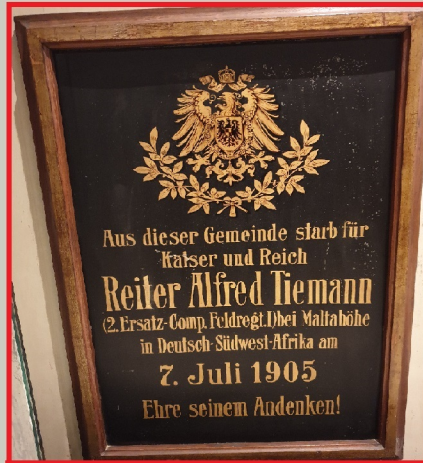 Aus dieser Gemeinde starb für
Kaiser und Reich
Reiter Alfred Tiemann
(2. Ersatz-Comp. Feldregt. I) bei Maltahöhe
in Deutsch-Südwest-Afrika am
7. Juli 1905
Ehre seinem Andenken!